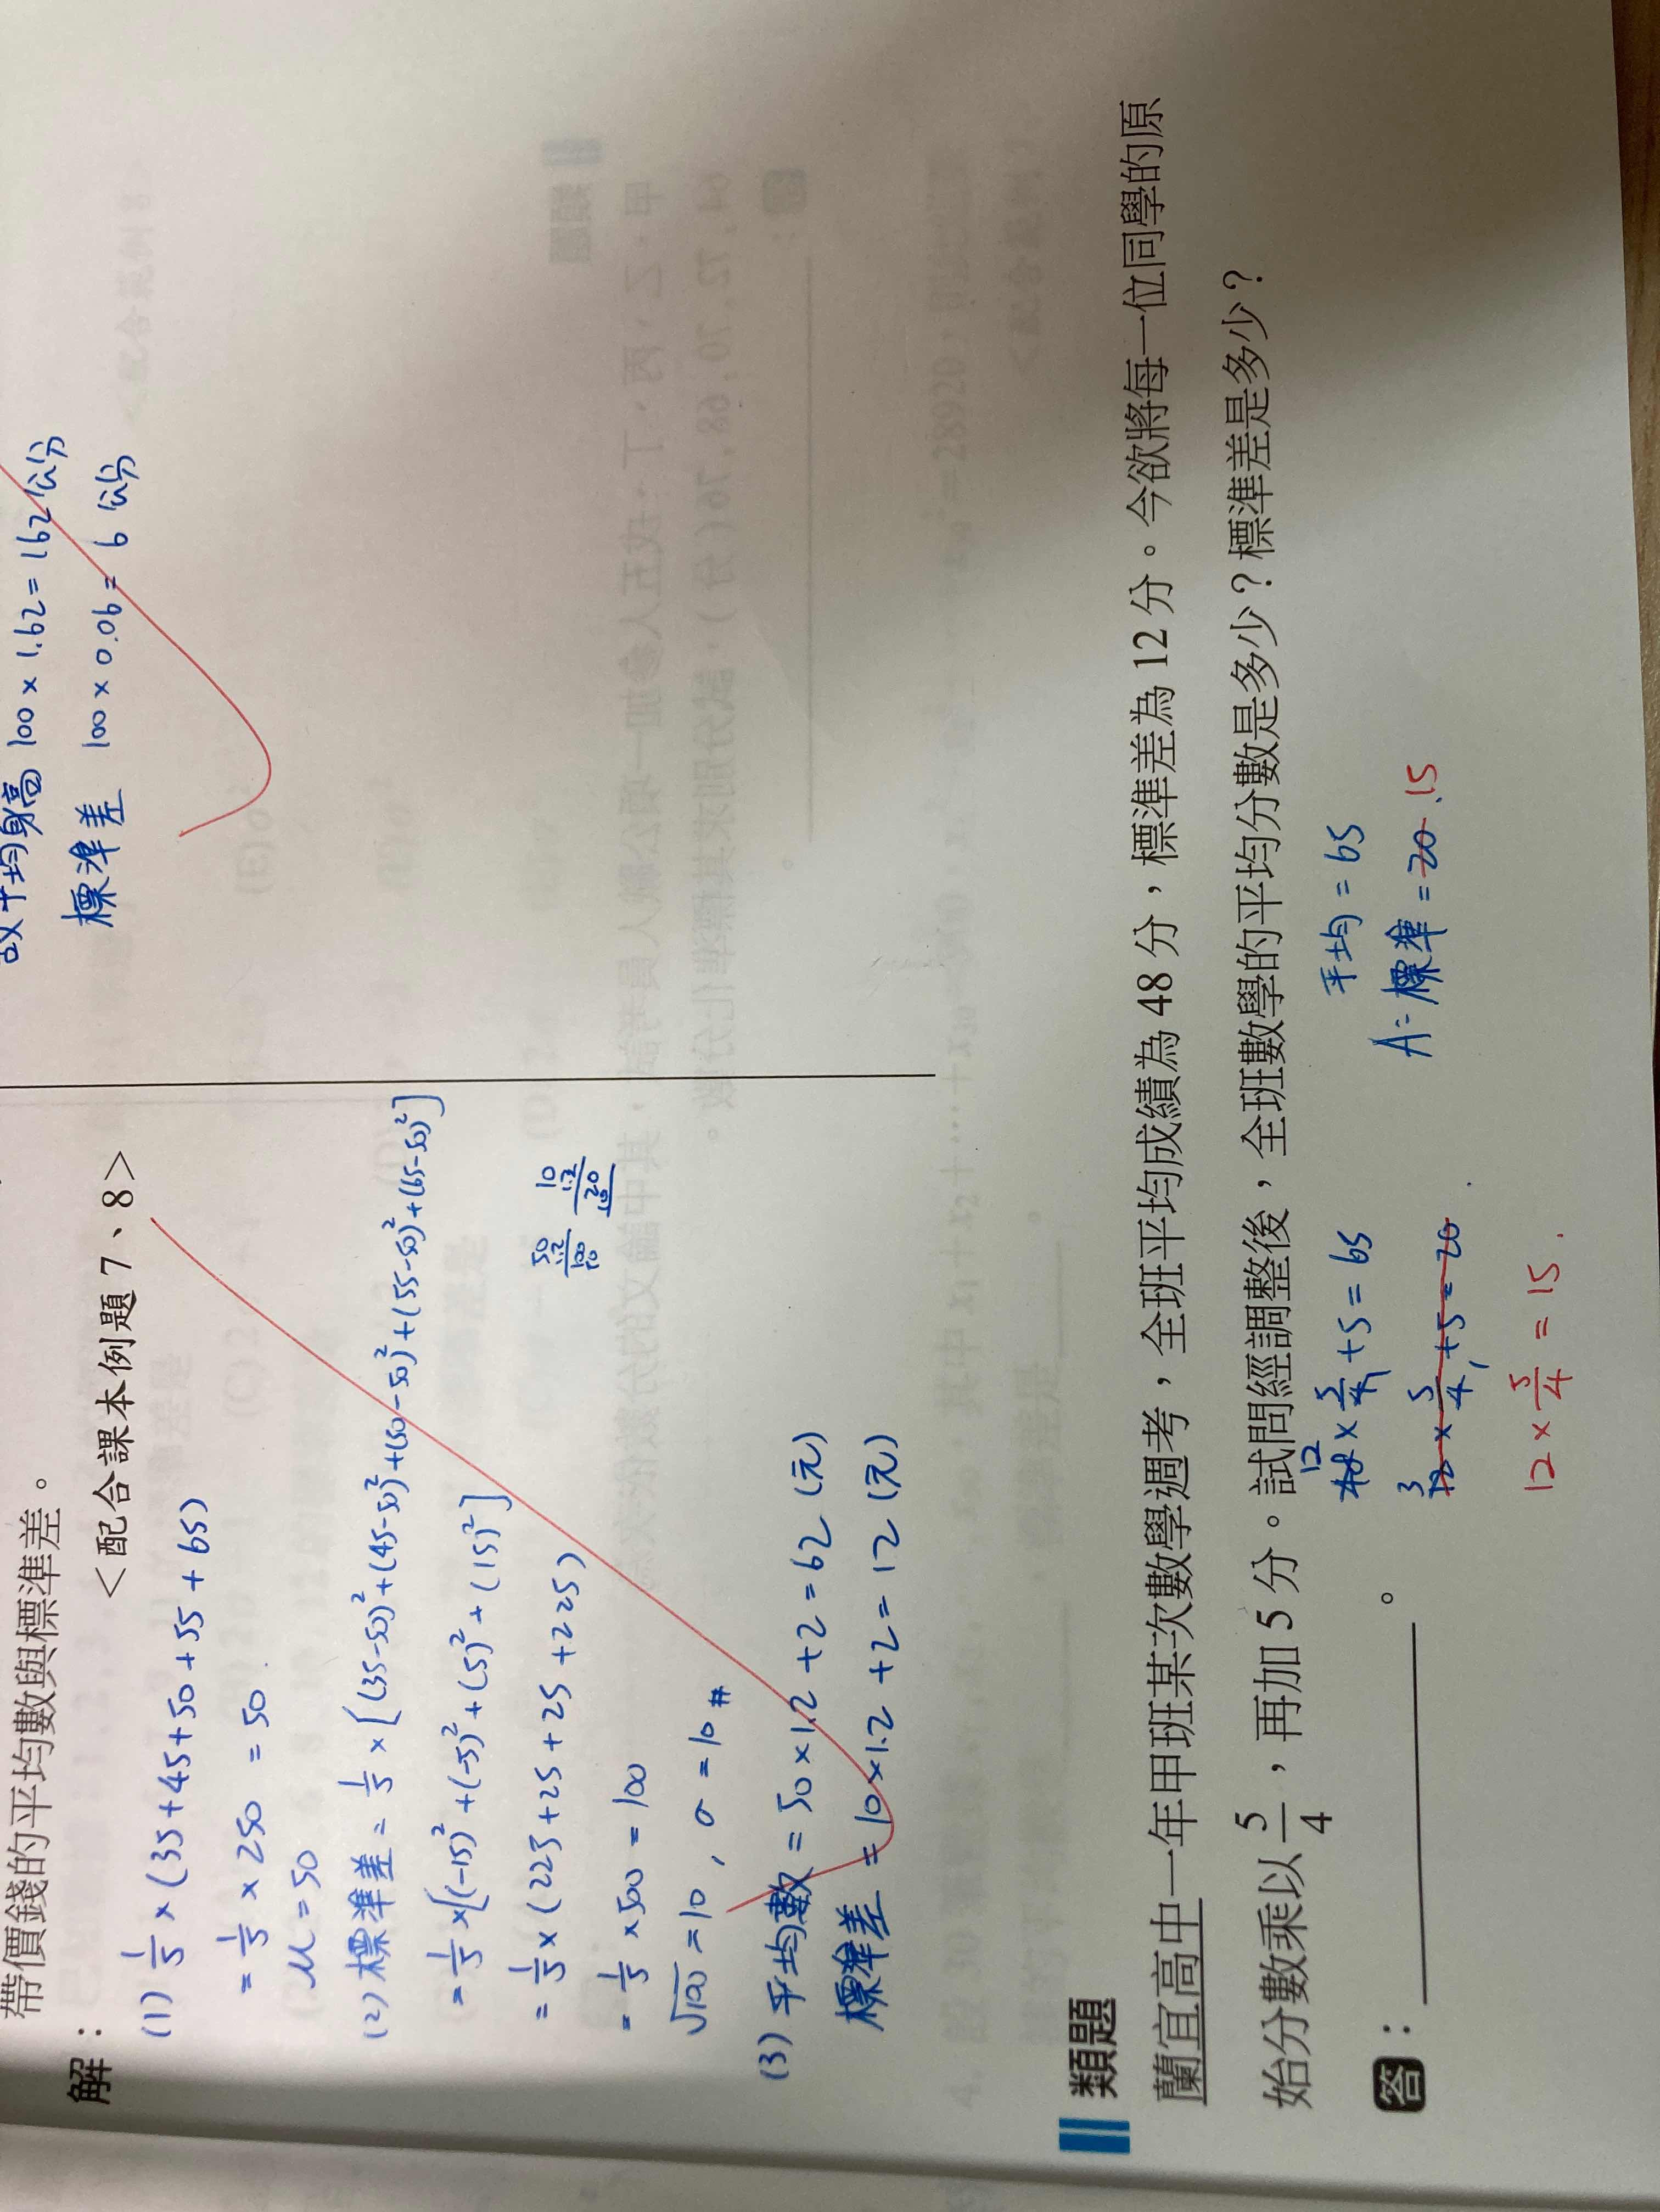 故平均身高 100 × 1.62 = 162 公分
標準差 100 × 0.06 = 6 公分
帶價錢的平均數與標準差。
<配合課本例題 7、8>
解：
(1) 1/5 × (35+45+50+55+65)
= 1/5 × 250 = 50
μ = 50
(2) 標準差 = 1/5 × [(35-50)²+(45-50)²+(50-50)²+(55-50)²+(65-50)²]
= 1/5 × [(-15)²+(-5)²+(5)²+(15)²]
= 1/5 × (225+25+25+225)
= 1/5 × 500 = 100
√100 = 10，σ = 10 #
(3) 平均數 = 50×1.2+2 = 62 (元)
標準差 = 10×1.2+2 = 12 (元)
50
1.2
100
10
1.2
20
10
類題
蘭宜高中一年甲班某次數學週考，全班平均成績為 48 分，標準差為 12 分。今欲將每一位同學的原
始分數乘以 5/4，再加 5 分。試問經調整後，全班數學的平均分數是多少？標準差是多少？
答：。
12
48 × 5/4 + 5 = 65
3
12 × 5/4 + 5 = 20
12 × 5/4 = 15.
平均 = 65
A: 標準 = 20 15